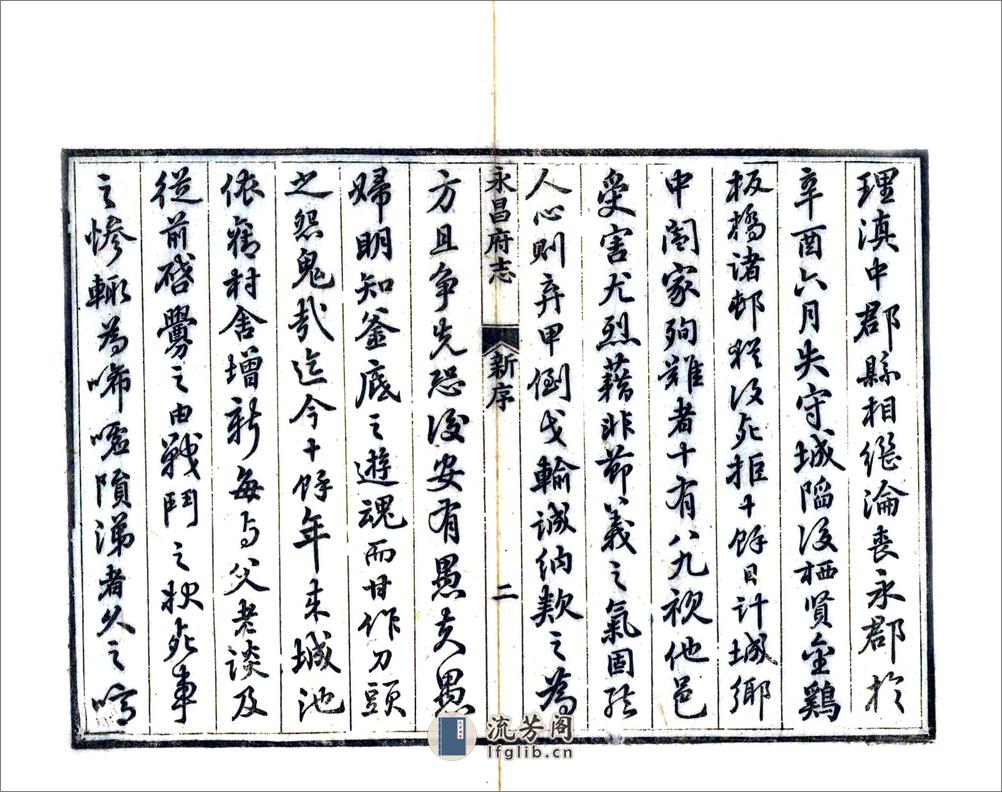 理滇中郡縣相繼淪喪永郡於
辛酉六月失守城陷後栖賢金鷄
板橋諸邨猶沒死拒十餘日計城鄉
中闔家殉難者十有八九視他邑
受害尤烈藉非節義之氣固結
人心則弃甲倒戈輸誠納款之爲
永昌府志 新序 二
方且争先恐後安有愚夫愚
婦明知釜底之遊魂而甘作刀頭
之怨鬼哉迄今十餘年來城池
依舊村舍增新每与父老談及
從前啓釁之由戰鬥之狀死事
之慘輒為唏噓隕涕者久之
流芳阁
lfglib.cn